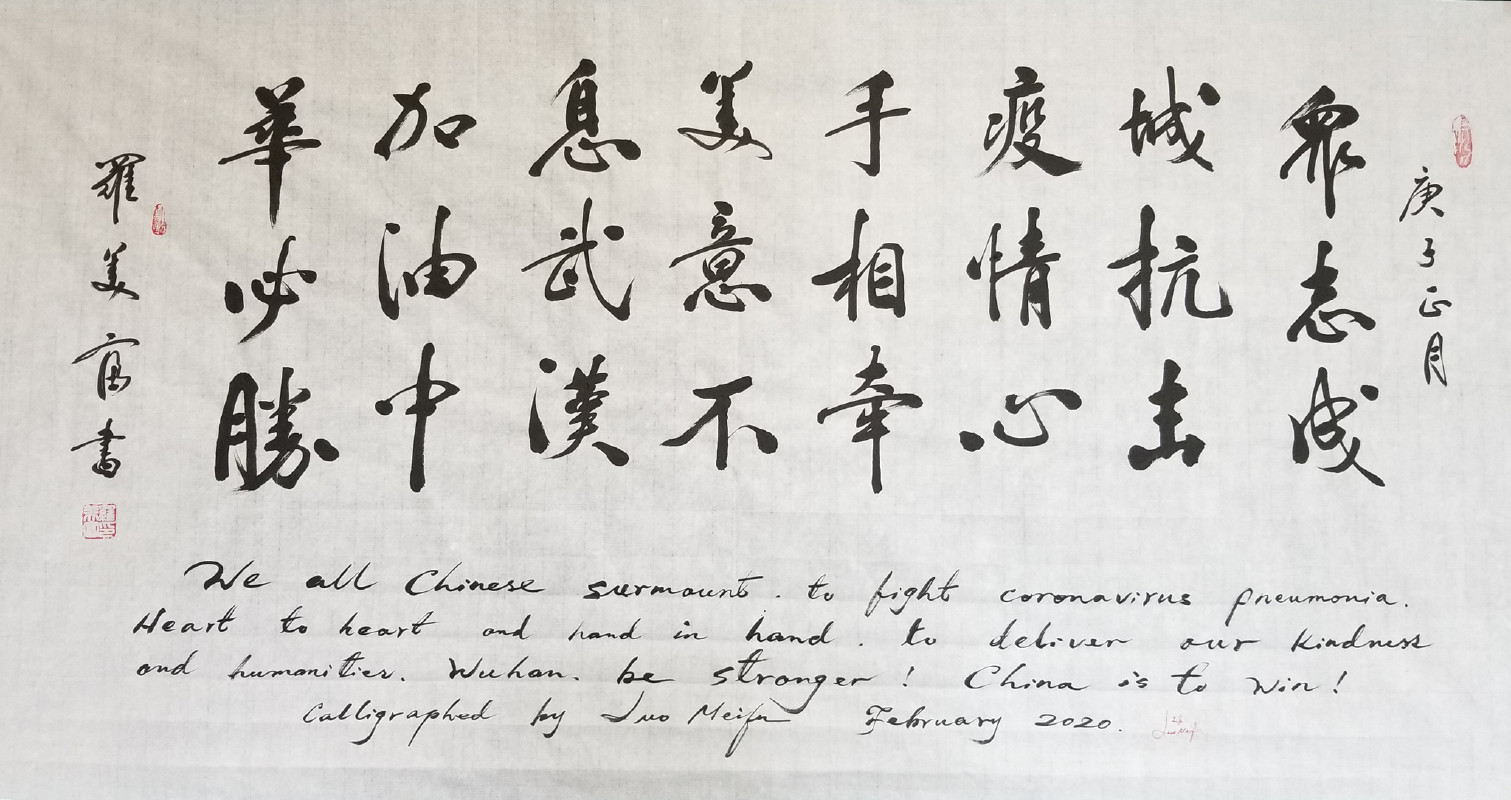 庚子正月
眾志成
城抗击
疫情心
手相牽
美意不
息武漢
加油中
華必勝
羅美富書
We all Chinese surmount. to fight coronavirus pneumonia.
Heart to heart and hand in hand. to deliver our kindness
and humanities. Wuhan. be stronger! China is to win!
Calligraphed by Luo Meifu February 2020.